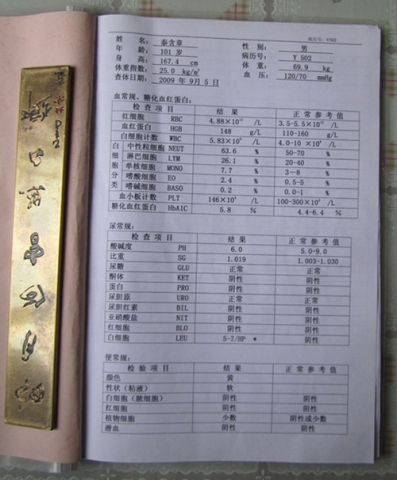 姓 名： 秦含章 性 别： 男
年 龄： 101 岁 病历号： Y 502
身 高： 167.4 cm 体 重： 69.9 kg
体重指数： 25.0 kg/m² 血 压： 120/70 mmHg
查体日期： 2009 年 9 月 5 日
血常规、糖化血红蛋白：
检 查 项 目 结 果 正 常 参 考 值
红细胞 RBC 4.88×10¹² /L 3.5-5.5×10¹² /L
血红蛋白 HGB 148 g/L 110-160 g/L
白细胞计数 WBC 5.83×10⁹ /L 4.0-10×10⁹ /L
白 中性粒细胞 NEUT 63.6 % 50-70 %
细 淋巴细胞 LYM 26.1 % 20-40 %
胞 单核细胞 MONO 7.7 % 3-8 %
分 嗜酸细胞 EO 2.4 % 0.5-5 %
类 嗜碱细胞 BASO 0.2 % 0.0-1 %
血小板计数 PLT 146×10⁹ /L 100-300×10⁹ /L
糖化血红蛋白 HbA1C 5.8 % 4.4-6.4 %
尿常规：
检 查 项 目 结 果 正 常 参 考 值
酸碱度 PH 6.0 5.0-9.0
比重 SG 1.019 1.003-1.030
尿糖 GLU 正常 正常
酮体 KET 阴性 阴性
蛋白 PRO 阴性 阴性
尿胆原 URO 正常 正常
尿胆红素 BIL 阴性 阴性
亚硝酸盐 NIT 阴性 阴性
红细胞 BLO 阴性 阴性
白细胞 LEU 5-7/HP * 阴性
便常规：
检 验 项 目 结 果 正 常 参 考 值
颜色 黄
性状（粘液） 软
白细胞（脓细胞） 阴性 阴性
红细胞 阴性 阴性
植物细胞 少数 阴性或少数
潜血 阴性 阴性